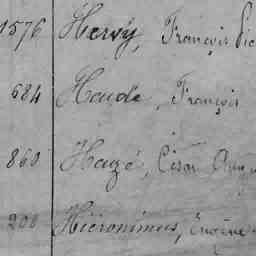 1576 Hervy, François Vic
684 Haude, François
860 Hazé, César Augu
200 Hiéronimus, Eugène